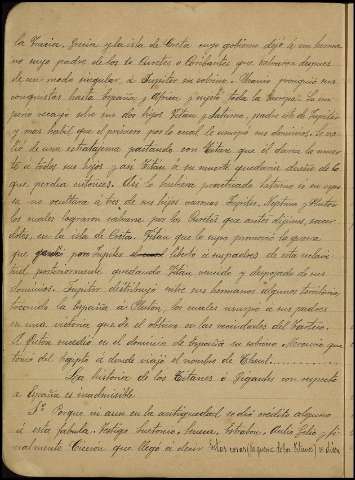 la Frigia, Grecia y la isla de Creta cuyo gobierno dejó á un herma
no suyo padre de los Curetes o Coribantes que salvaron despues
de un modo singular, á Jupiter su sobrino. Uranio prosiguió sus
conquistas hasta España y Africa, y sujetó toda la Europa. La im
perio recayó sobre sus dos hijos Titan y Saturno, padre este de Jupiter
y mas habil que el primero por lo cual le usurpó sus dominios. Se va
lió de una estratagema pactando con Titan que él daria la muer
te á todos sus hijos y asi Titan á su muerte quedaria dueño de lo
que perdia entonces. Asi lo hubiera practicado Saturno si su espo
sa no ocultara á tres de sus hijos varones Jupiter, Neptuno y Pluton
los cuales lograron salvarse por los Curetes que antes dijimos, sacer
dotes, en la isla de Creta. Titan que lo supo promovió la guerra
que ganó por Jupiter libertó á sus padres de esta esclavi
tud posteriormente quedando Titan vencido y despojado de sus
dominios. Jupiter distribuyó entre sus hermanos algunos territorios
tocando la España á Pluton, los cuales usurpó a sus padres
en una victoria que de él obtuvo en las vecindades del Bártico.
A Pluton sucedió en el dominio de España su sobrino Mercurio que
tomó del Egipto a donde viajó el nombre de Theut
La historia de los Titanes ó Gigantes con respecto
á España es inadmisible.
1º Porque ni aun en la antigüedad se dió credito alguno
á esta fabula. Testigo Suetonio, Seneca, Estrabon, Aulo Gelio y fi
nalmente Ciceron que llegó a decir